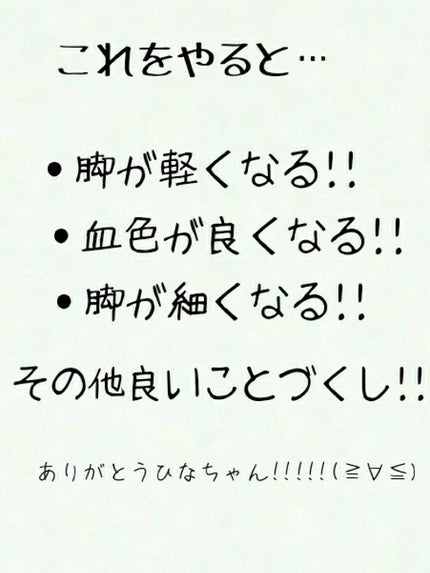 これをやると…
•脚が軽くなる!!
•血色が良くなる!!
•脚が細くなる!!
その他良いことづくし!!
ありがとうひなちゃん!!!!!(≧∀≦)